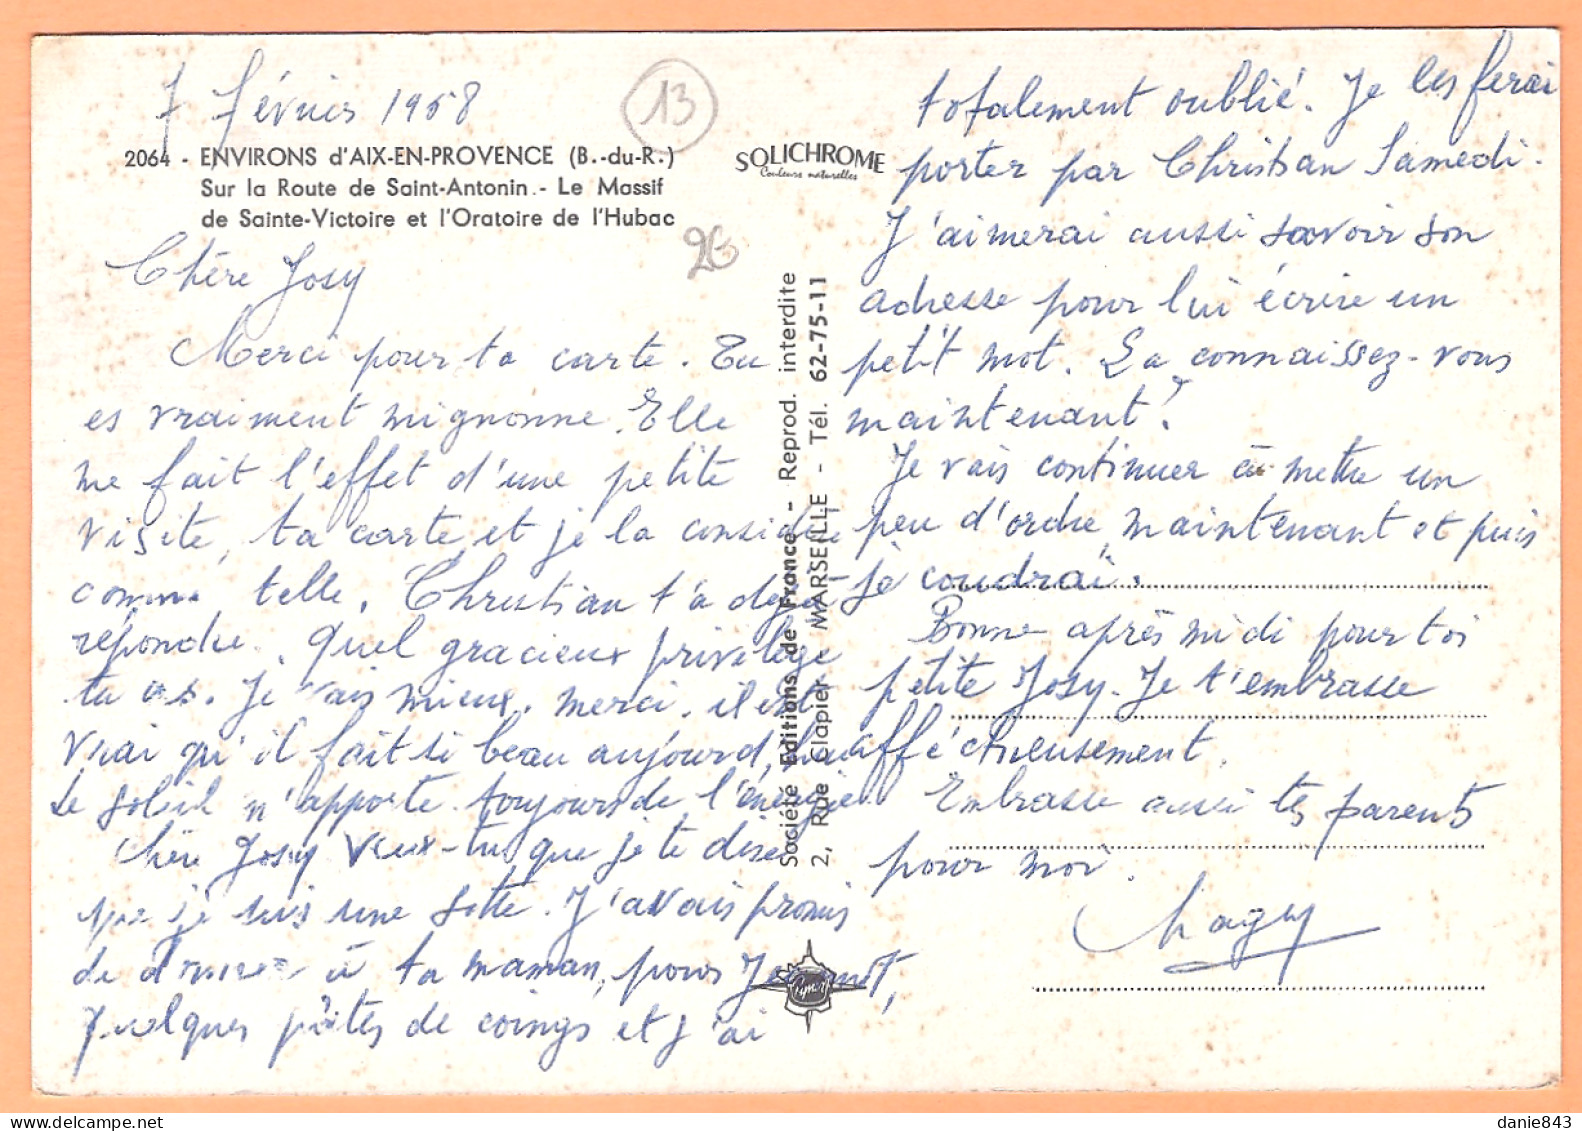 7 février 1968
13
2064 - ENVIRONS d'AIX-EN-PROVENCE (B.-du-R.)
Sur la Route de Saint-Antonin - Le Massif
de Sainte-Victoire et l'Oratoire de l'Hubac
SOLICHROME
Couleurs naturelles
Chère Josy
Merci pour ta carte. Tu
es vraiment mignonne. Elle
me fait l'effet d'une petite
visite, ta carte et je la considère
comme telle. Christian t'a déjà
répondre. Quel gracieux privilège
tu as. Je vais mieux. merci. il est
vrai qu'il fait si beau aujourd'hui
Le soleil m'apporte toujours de l'énergie.
Chère Josy veux-tu que je te dise
que je suis une sotte. J'avais promis
de donner à ta maman, pour
quelques pâtes de coings et j'ai
Société Editions de France - Reprod. interdite
2, Rue Clapier MARSEILLE - Tél. 62-75-11
totalement oublié. Je les ferai
porter par Christian Samedi.
J'aimerai aussi savoir son
adresse pour lui écrire un
petit mot. La connaissez-vous
maintenant?
Je vais continuer à mettre un
peu d'ordre maintenant et puis
je coudrai.
Bonne après midi pour toi
petite Josy. Je t'embrasse
afféctueusement.
Embrasse aussi tes parents
pour moi.
Magy
danie843